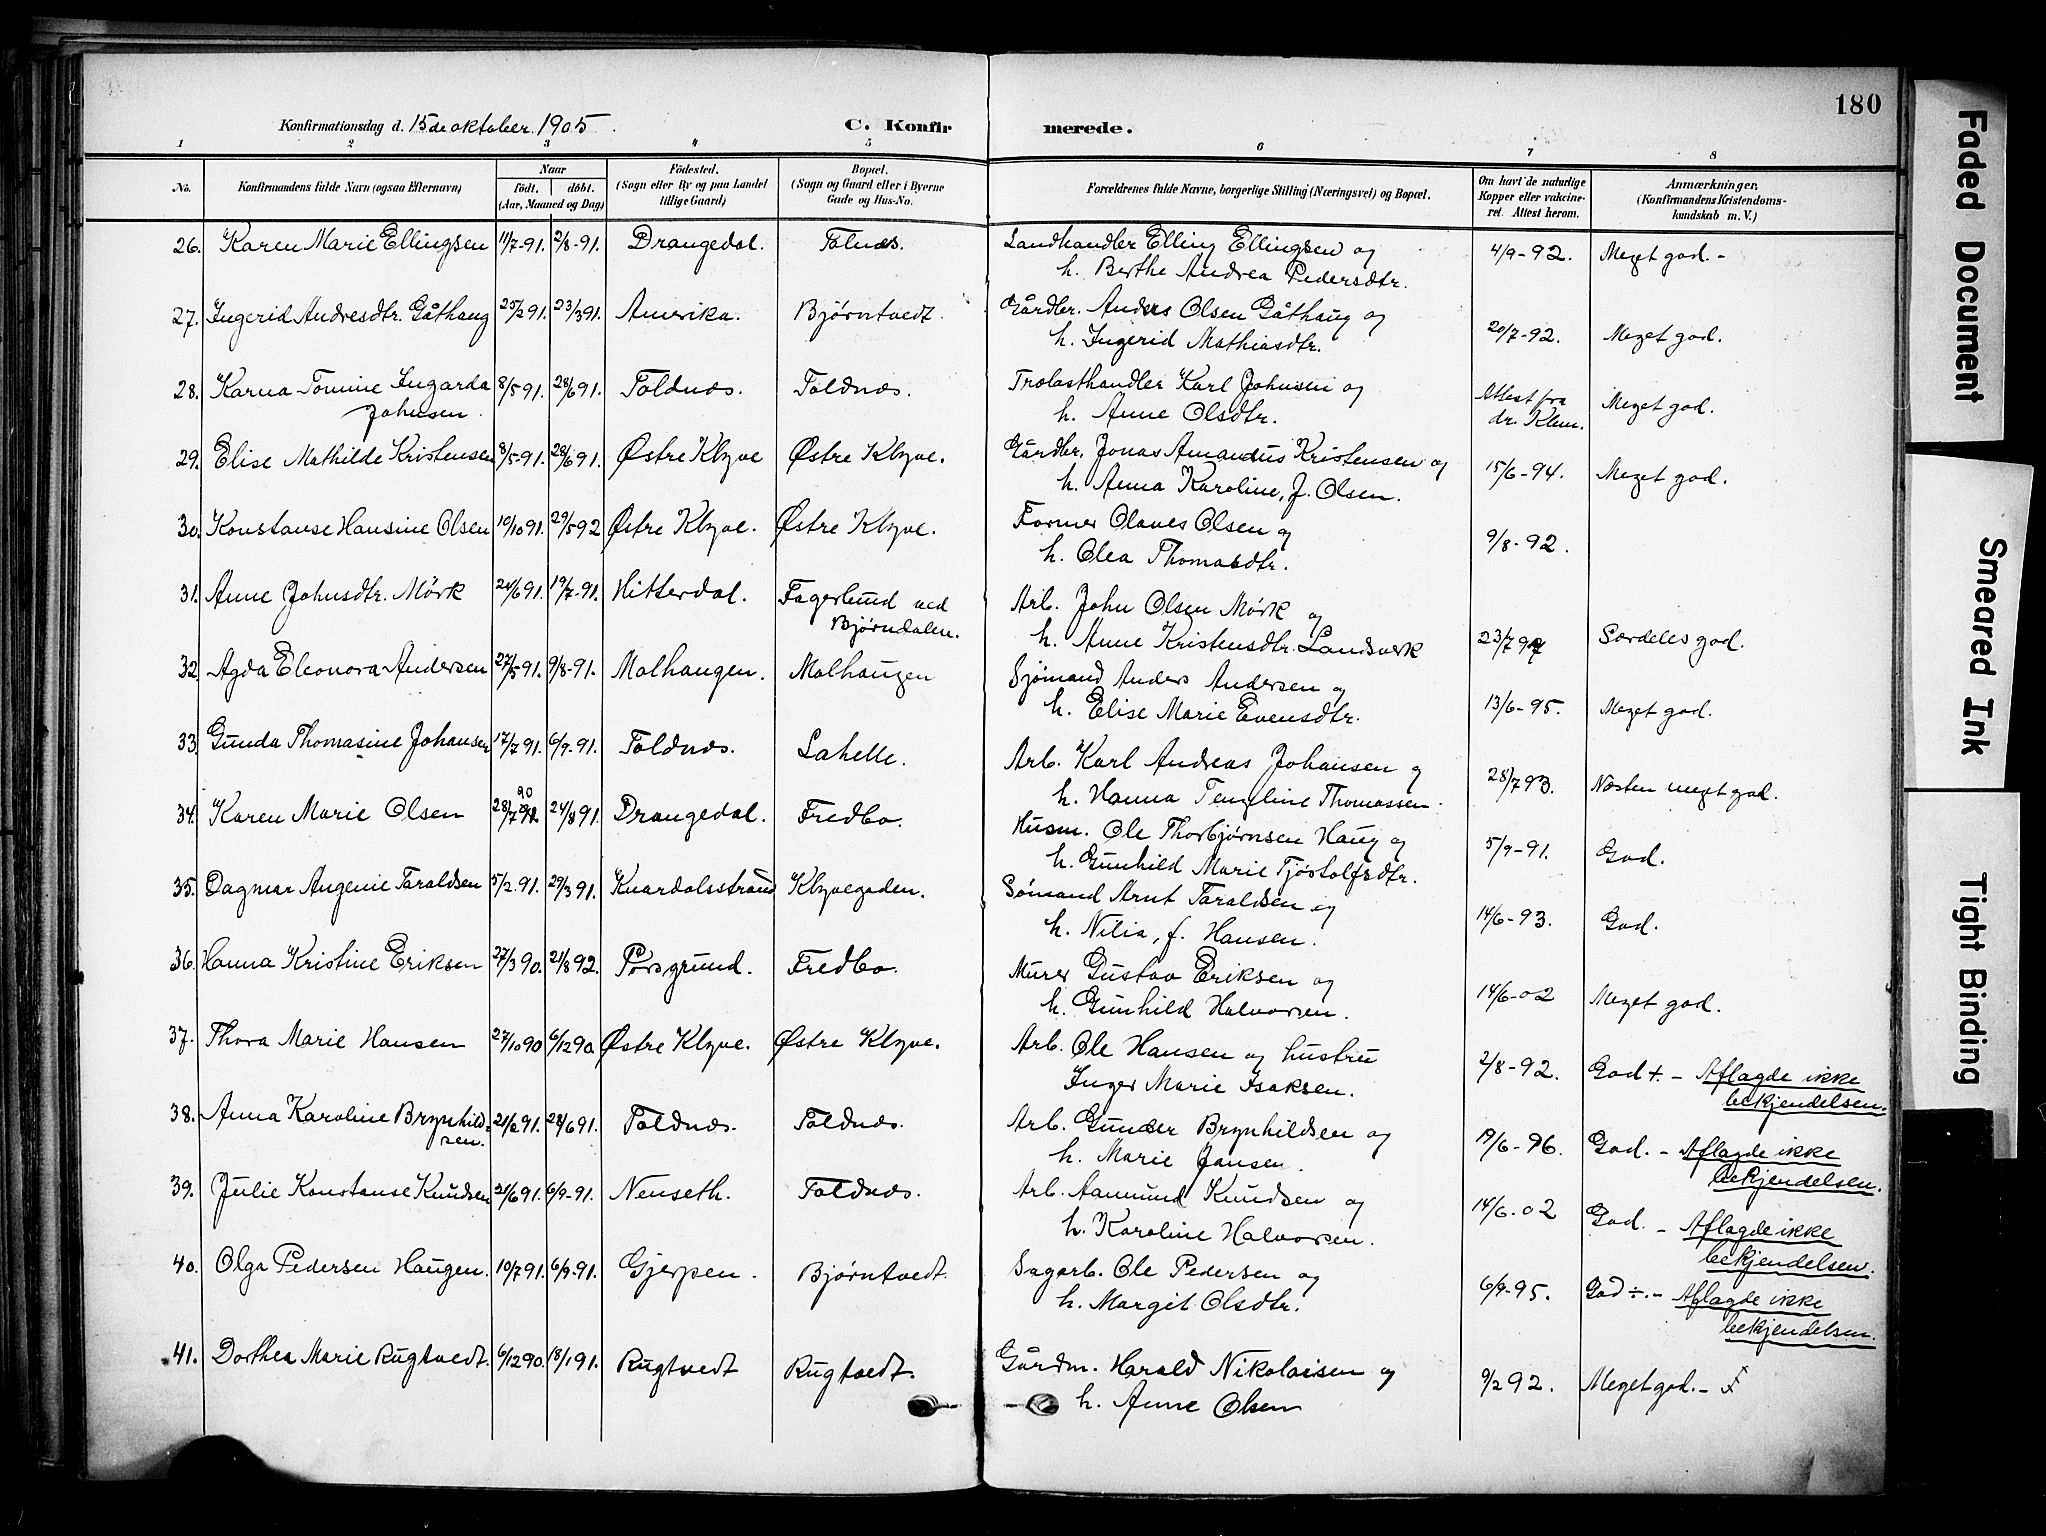 180
Konfirmationsdag d. 15de oktober 1905
C. Konfirmerede.
1 2 3 4 5 6 7 8
No.
Konfirmandens fulde Navn (ogsaa Efternavn)
Naar
født. døbt.
(Aar, Maaned og Dag)
Fødested.
(Sogn eller By og paa Landet
tillige Gaard)
Bopæl.
(Sogn og Gaard eller i Byerne
Gade og Hus-No.
Forældrenes fulde Navne, borgerlige Stilling (Næringsvei) og Bopæl.
Om havt de naturlige
Kopper eller vakcine-
ret. Attest herom.
Anmærkninger.
(Konfirmandens Kristendoms-
kundskab m. V.)
26. Karen Marie Ellingsen 11/7-91. 2/8-91. Drangedal. Tolnæs. Landhandler Elling Ellingsen og
h. Berthe Andrea Pedersdtr. 4/9-92. Meget god. -
27. Ingerid Andresdtr. Gåthaug 25/2 91. 23/3 91. Amerika. Bjørntvedt. Gårdbr. Anders Olsen Gåthaug og
h. Ingerid Mathiasdtr. 20/7-92. Meget god.
28. Karna Tomine Ingarda 8/5 91. 28/6 91. Toldnæs. Toldnæs. Trælasthandler Karl Johnsen og
Johnsen. h. Anne Olsdtr. Attest fra
dr. Klem. Meget god.
29. Elise Mathilde Kristensen 8/5-91. 28/6 91. Østre Klyve Østre Klyve. Gårdbr. Jonas Amandus Kristensen og
h. Anna Karoline, f. Olsen. 15/6-94. Meget god.
30. Konstanse Hansine Olsen 10/10 91. 29/5 92 Østre Klyve. Østre Klyve. Former Olaves Olsen og
h. Olea Thomasdtr. 9/8-92.
31. Anne Johnsdtr. Mørk 24/6 91. 19/7-91. Hitterdal. Fagerlund ved
Bjørndalen. Arb. John Olsen Mørk og
h. Anne Kristensdtr. Landsverk 23/7 97 Særdeles god.
32. Agda Eleonora Andersen 27/5 91. 9/8-91. Molhaugen. Molhaugen Sjømand Anders Andersen og
h. Elise Marie Evensdtr. 13/6-95. Meget god.
33. Gunda Thomasine Johansen 17/7 91. 6/9-91. Toldnæs. Lahelle. Arb. Karl Andreas Johansen og
h. Hanna Tengeline Thomassen. 28/7 93. Næsten meget god.
34. Karen Marie Olsen 28/7 90 24/8 91. Drangedal. Fredbo. Husm. Ole Thorbjørnsen Haug og
h. Gunhild Marie Tjøstolfsdtr. 5/9-91. God.
35. Dagmar Angenie Taraldsen 5/2.91. 29/3 91. Knardalsstrand Klyvegaden. Sømand Arnt Taraldsen og
h. Nilia, f. Hansen. 14/6-93. God.
36. Hanna Kristine Eriksen 27/3 90. 21/8 92. Porsgrund. Fredbo. Murer Gustav Eriksen og
h. Gunhild Halvorsen. 14/6-02 Meget god.
37. Thora Marie Hansen 27/10 90 6/12 90. Østre Klyve. Østre Klyve. Arb. Ole Hansen og hustru
Inger Marie Isaksen. 2/8-92. God +. - Aflagde ikke
bekjendelsen.
38. Anna Karoline Brynhild-
sen. 21/2 91. 28/6 91. Toldnæs. Toldnæs. Arb. Gunder Brynhildsen og
h. Marie Jansen. 19/6-96. God. - Aflagde ikke
bekjendelsen.
39. Julie Konstanse Knudsen 21/6 91. 6/9-91. Nenseth. Toldnæs. Arb. Aamund Knudsen og
h. Karoline Halvorsen. 14/6-02 God. - Aflagde ikke
bekjendelsen.
40. Olga Pedersen Haugen. 10/7 91. 6/9-91. Gjerpen. Bjørntvedt. Sagarb. Ole Pedersen og
h. Margit Olsdtr. 6/9-95. God ÷. - Aflagde ikke
bekjendelsen.
41. Dorthea Marie Rugtvedt. 6/12 90. 18/1 91. Rugtvedt Rugtvedt. Gårdm. Harald Nikolaisen og
h. Anne Olsen 9/2 92. Meget god. -
Faded Document
Smeared Ink
Tight Binding